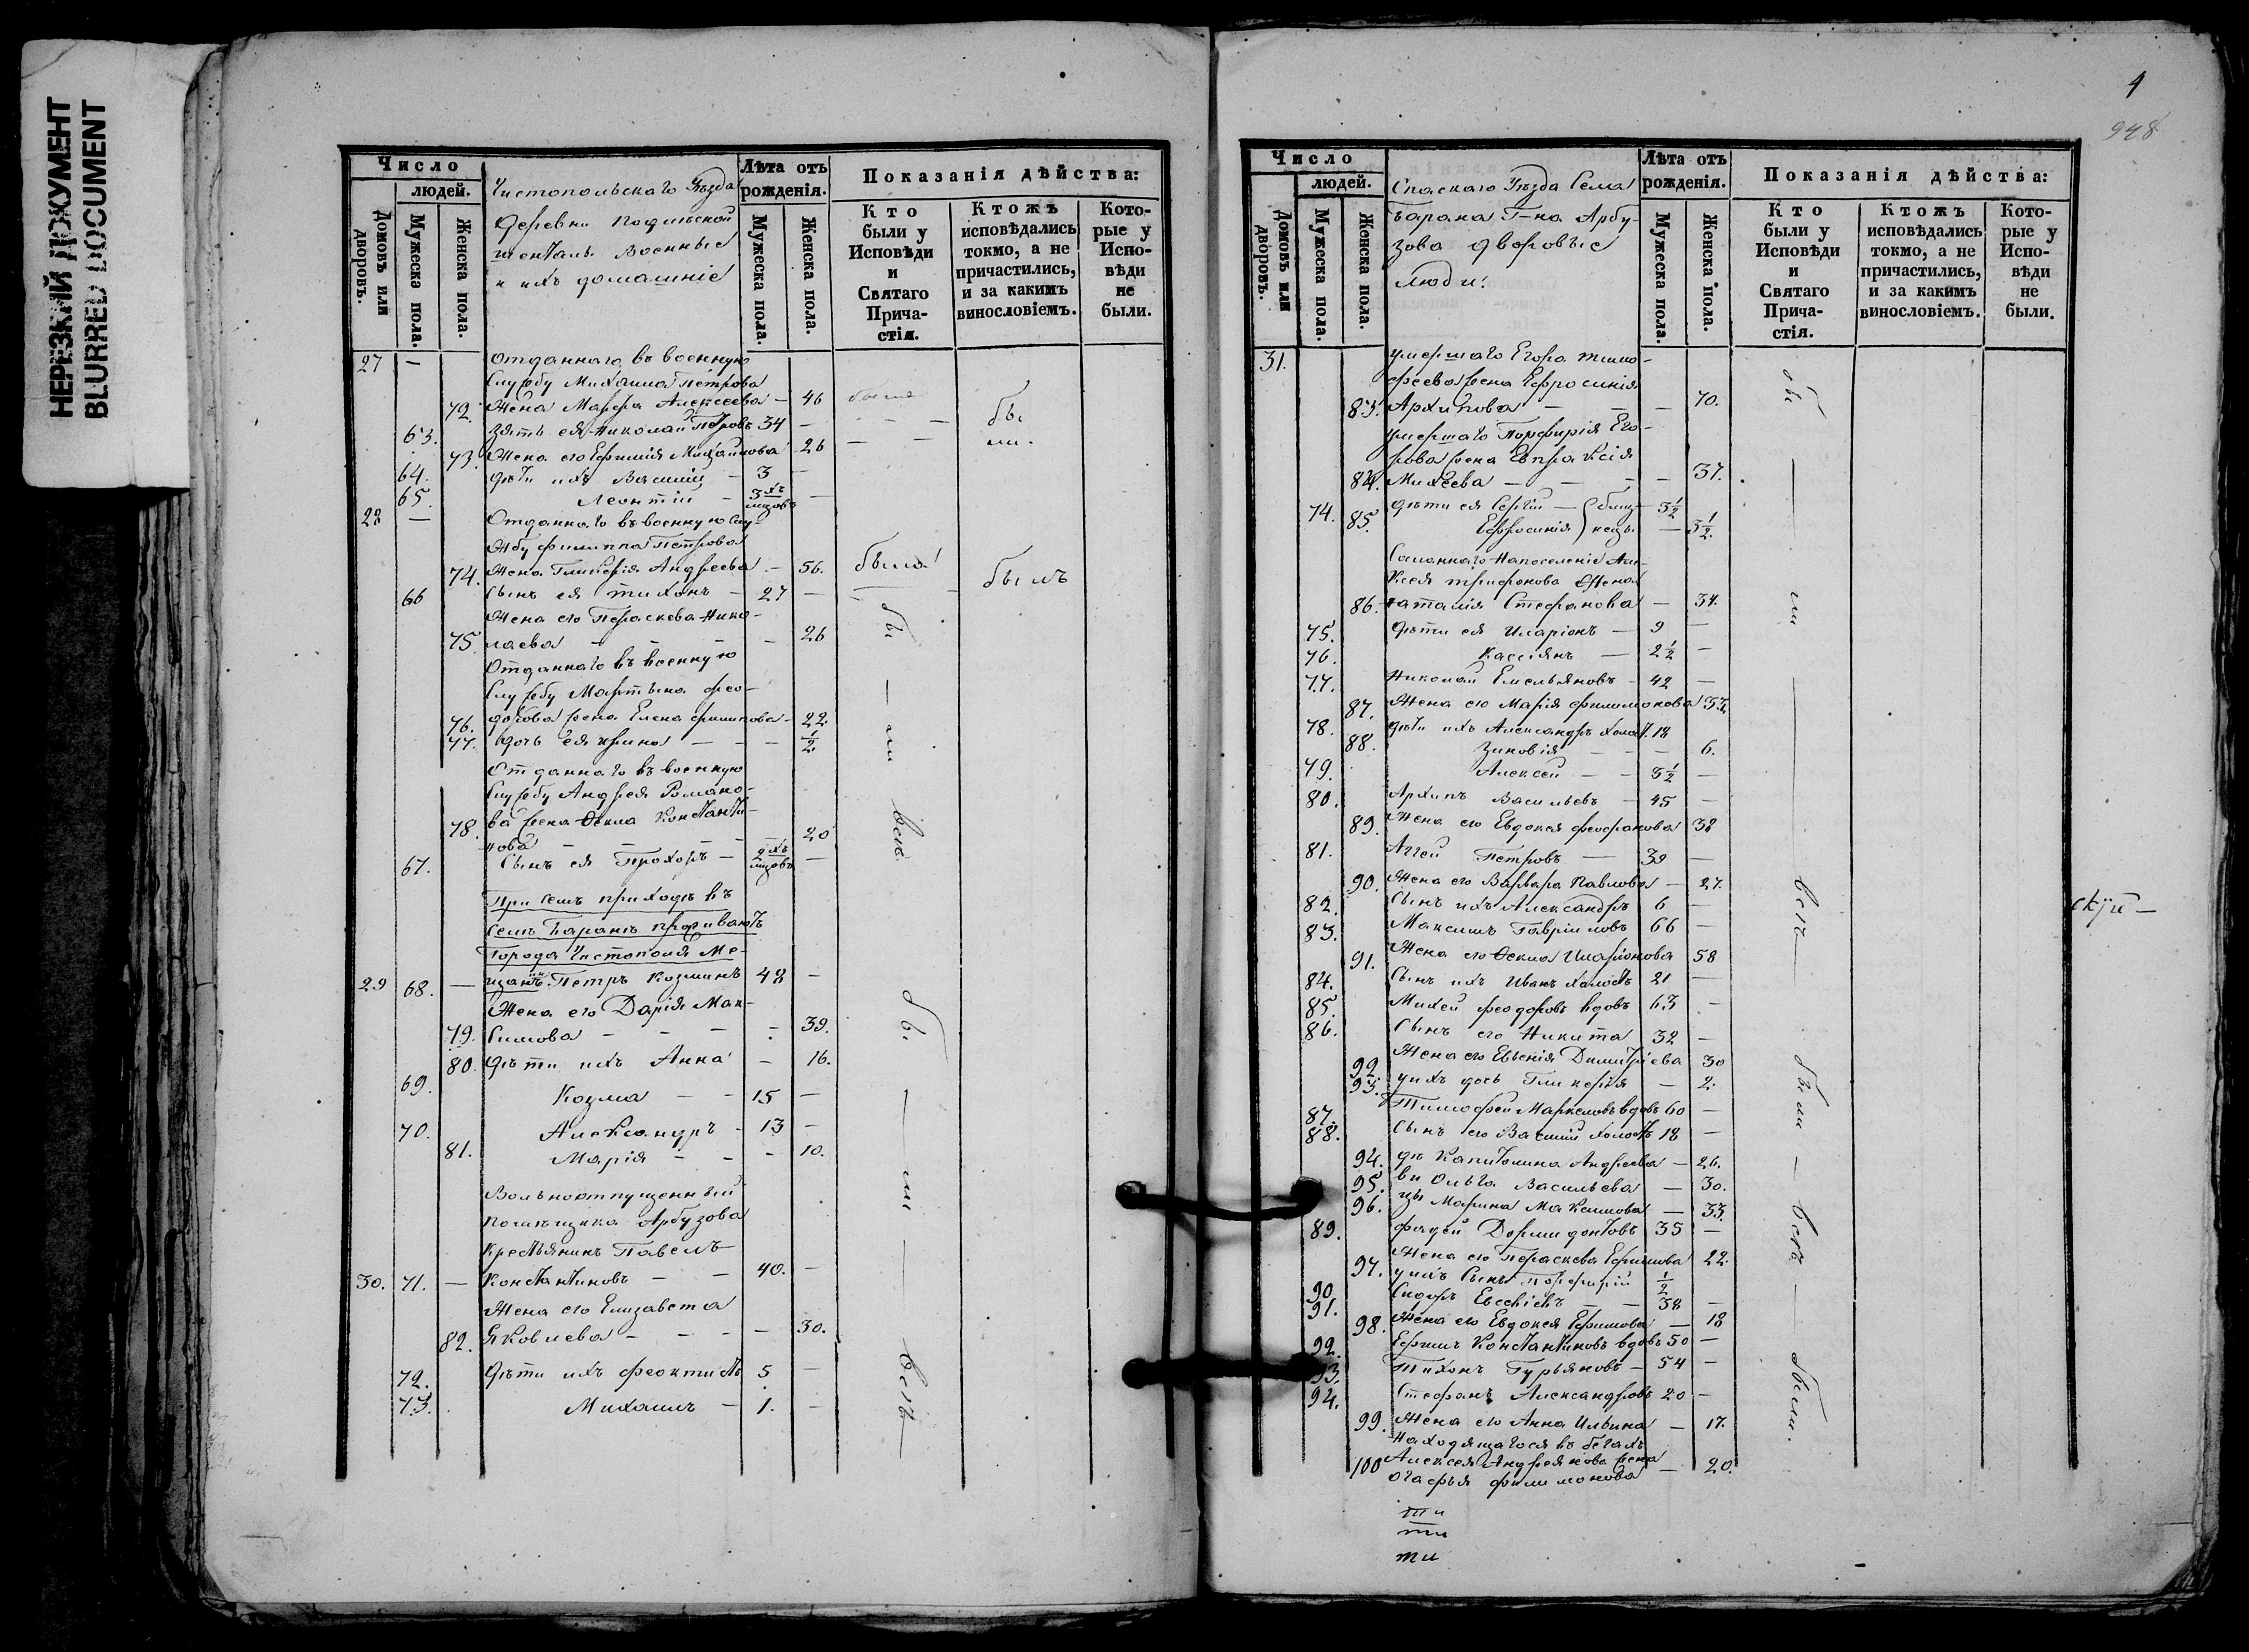 НЕРЕЗКИЙ ДОКУМЕНТ
BLURRED DOCUMENT
Число
людей.
Домовъ или дворовъ.
Мужеска пола.
Женска пола.
Чистопольскаго Уѣзда
деревни
Военные
и ихъ домашніе
Лѣта отъ рожденія.
Мужеска пола.
Женска пола.
Показанія дѣйства:
Кто были у Исповѣди и Святаго Причастія.
Ктожъ исповѣдались токмо, а не причастились, и за какимъ винословіемъ.
Которые у Исповѣди не были.
27 — Отданнаго въ военную
службу Михаила Петрова
72. Жена Марфа Алексеева — 46 была
63. зять ея Николай Петровъ 34 — бы
73. Жена его Ефимія Михайлова 26 — ли.
64. дѣти ихъ Василій — 3 —
65. Леонтій — 3хъ мцовъ —
28 — Отданнаго въ военную слу-
жбу Филиппа Петрова
74. Жена Гликерія Андреева — 56. была
66 Сынъ ея Тихонъ — 27 — былъ
Жена его Параскева Нико-
75. лаева — — — 26
Отданнаго въ военную
службу Мартына Фео-
76. дорова жена Елена Филипова — 22.
77. дочь ея Ирина — — — 1/2
Отданнаго въ военную
службу Андрея Романо-
78. ва жена Фекла Константи-
нова — — — 20
67. Сынъ ея Прохоръ — мцовъ —
При семъ приходѣ въ
селѣ Баранѣ проживаютъ
Города Чистополя Ме-
29 68. — щанинъ Петръ Козминъ 48 —
Жена его Дарія Мак-
79. симова — — — 39.
80. Дѣти ихъ Анна — 16.
69. Козма — — 15 —
70. Александръ — 13 —
81. Марія — — — 10.
Вольноотпущенный
помѣщика Арбузова
крестьянинъ Павелъ
30. 71. — Константиновъ — — 40. —
Жена его Елизавета
82. Яковлева — — — 30.
72. Дѣти ихъ Феоктистъ 5 —
73. Михаилъ — 1. —
бы — ли всѣ
бы — ли — всѣ —
4
948
Число
людей.
Домовъ или дворовъ.
Мужеска пола.
Женска пола.
Спаскаго Уѣзда Села
Барана Г-на Арбу-
зова дворовые
люди:
Лѣта отъ рожденія.
Мужеска пола.
Женска пола.
Показанія дѣйства:
Кто были у Исповѣди и Святаго Причастія.
Ктожъ исповѣдались токмо, а не причастились, и за какимъ винословіемъ.
Которые у Исповѣди не были.
31. умершаго Егора Тимо-
феева жена Ефросинія
83. Архипова — — — 70.
умершаго Порфирія Его-
рова жена Евпраксія
84. Михеева — — — 37.
74. дѣти ея Сергій — близ- 3 1/2
85. Ефросинія нецы — 3 1/2.
Сосланнаго на поселеніе Але-
ксея Трифонова жена
86. Наталія Стефанова — 34.
75. дѣти ея Иларіонъ — 9 —
76. Кассіянъ — 2 1/2 —
77. Николай Емельяновъ — 42 —
87. Жена его Марія Филимонова 37.
78. дѣти ихъ Александръ холос. 18
88. Зиновія — — — 6.
79. Алексей — — 3 1/2 —
80. Архипъ Васильевъ — 45 —
89. Жена его Евдокея Феофанова 38
81. Аггей Петровъ — 39 —
90. Жена его Варвара Павлова — 27.
82. Сынъ ихъ Александръ 6 —
83. Максимъ Гавриловъ 66 —
91. Жена его Фекла Иларіонова 58
84. Сынъ ихъ Иванъ холостъ 21 —
85. Михей Феодоровъ вдовъ 63 —
86. Сынъ его Никита 32 —
92. Жена его Евгенія Димитріева 30
93. у ихъ дочь Гликерія — 2.
87. Тимофей Маркеловъ вдовъ 60 —
88. Сынъ его Василій холостъ 18 —
94. дѣ Капитолина Андреева — 26.
95. ви Ольга Васильева — 30.
96. цы Марина Максимова — 33.
89. Фадей Дормидонтовъ 35 —
Жена его Параскева Ефимова 22.
97. у ихъ Сынъ Порфирій 1/2
90. Сидоръ Евсевіевъ — — 38 —
91.
98. Жена его Евдокея Ефимова — 18
92. Ефимъ Константиновъ вдовъ 50 —
93. Тихонъ Гурьяновъ — 54 —
94. Стефанъ Александровъ 20 —
99. Жена его Анна Ильина — 17.
Находящагося въ бегахъ
100 Алексея Андреянова жена — 20.
Агафья Филимонова
бы — ли — всѣ
были — всѣ — были.
ти
ти
ти